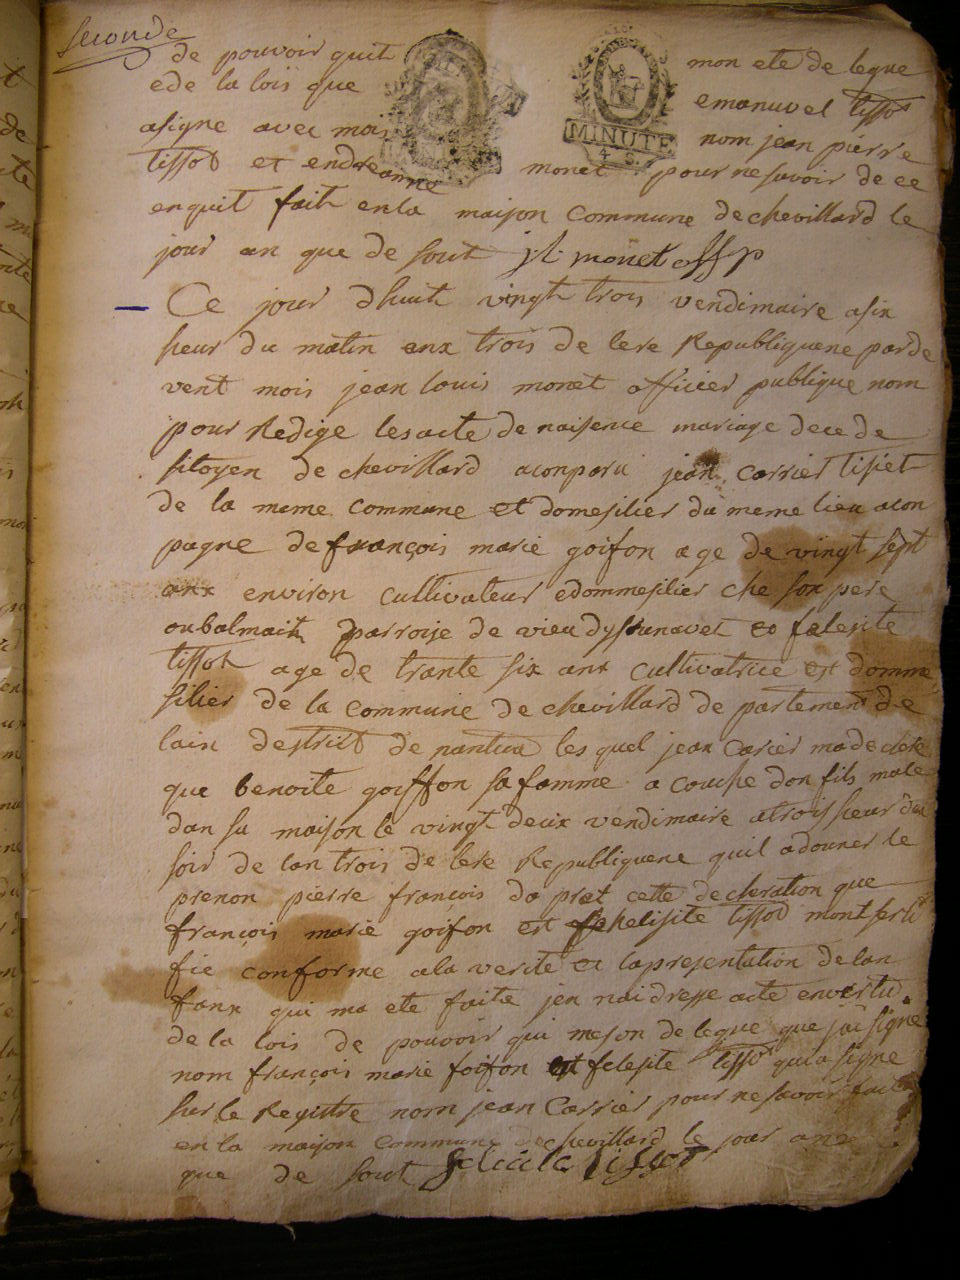 seconde
de pouvoir quit mon ete de legue
ede la lois que emanuvel tissot
asigne avec mois nom jean pierre
tissot et endreanne monet pour ne savoir de ce
enquit fait en la maison commune de chevillard le
jour an que de sout jl monet off p
Ce jour dhuit vingt trois vendimaire asix
heur du matin anx trois de lere Republiquene parde
vent mois jean louis monet officier publique nom
pour Redige les acte de naisence mariage decede
sitoyen de chevillard aconparu jean carrier tisiet
de la meme commune et domesilier du meme lieu acon
pagne de françois marie goifon age de vingt sept
anx environ cultivateur edommesilier che son pere
oubalmait parroise de vieu dysunavet et felesite
tissot age de trante six anx cultivatrice est domme
silier de la commune de chevillard de partement de
lain destrict de nantua les quel jean carier ma declere
que benoite goiffon sa famme a couche don fils male
dan sa maison le vingt deux vendimaire atrois heur du
soir de lan trois de lere Republiquene quil adouner le
prenon pierre francois da pret cette decleration que
françois marie goifon est felesite tissot mont serti
fie conforme ala verite et lapresentation de lan
fanx qui ma ete faite jen nai dresse acte envertu
de la lois de pouvoir qui meson delegue que jai signe
nom françois marie foifon est felesite tissot quia signe
sur le Registre nom jean Carrier pour ne savoir fait
en la maison commune de chevillard le jour anx
que de sout felicite Tissot
MINUTE
4 S.